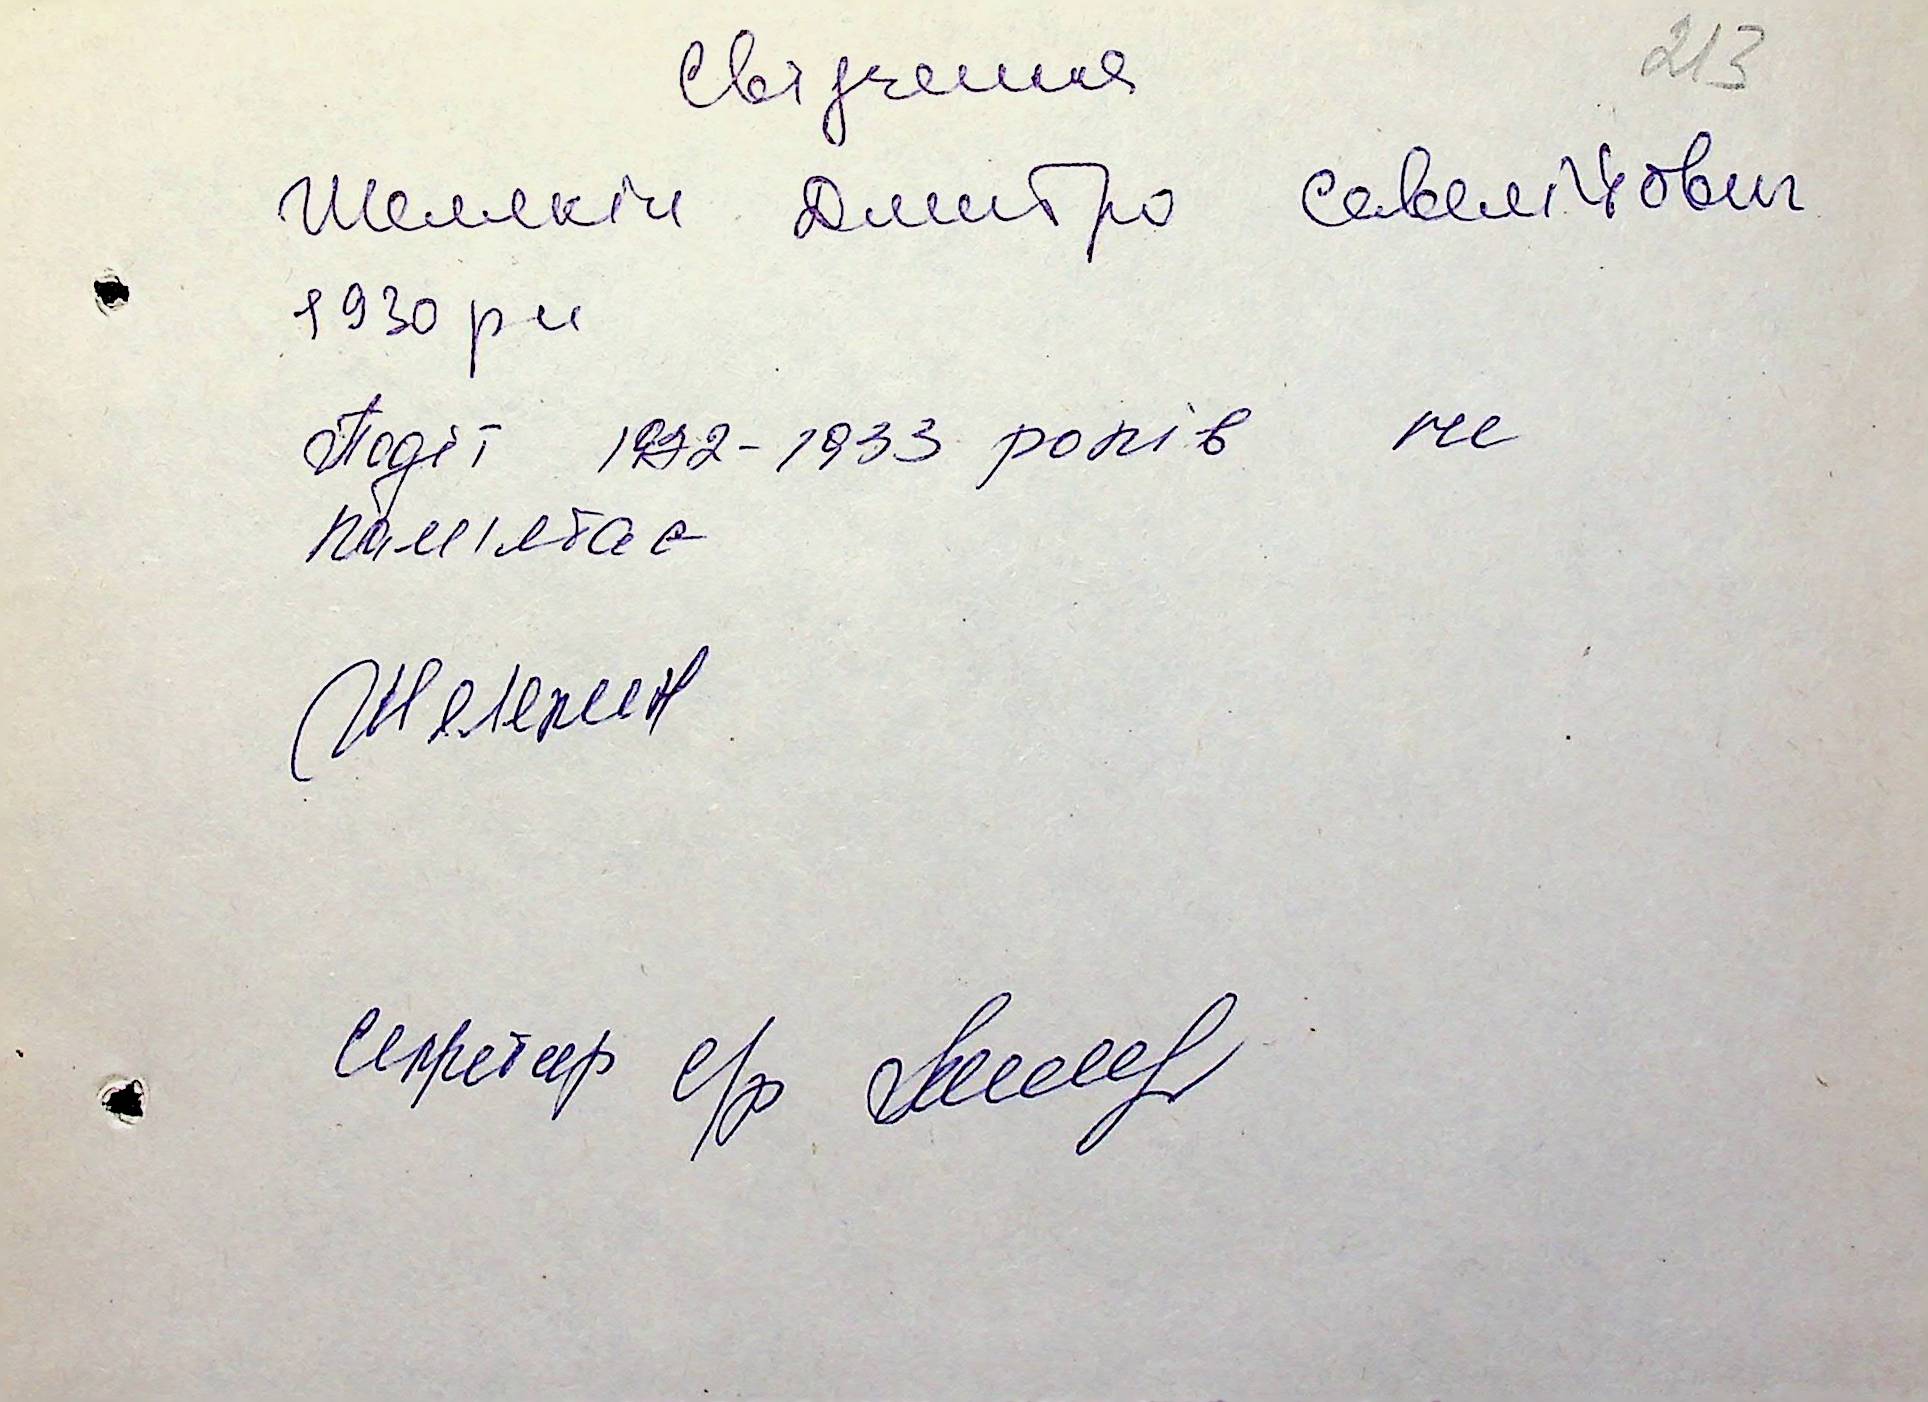 213
Свідчення
Шелякін Дмитро Савелійович
1930 рн
Події 1932-1933 років не
памілтає
Шелякин
Секретар с/р